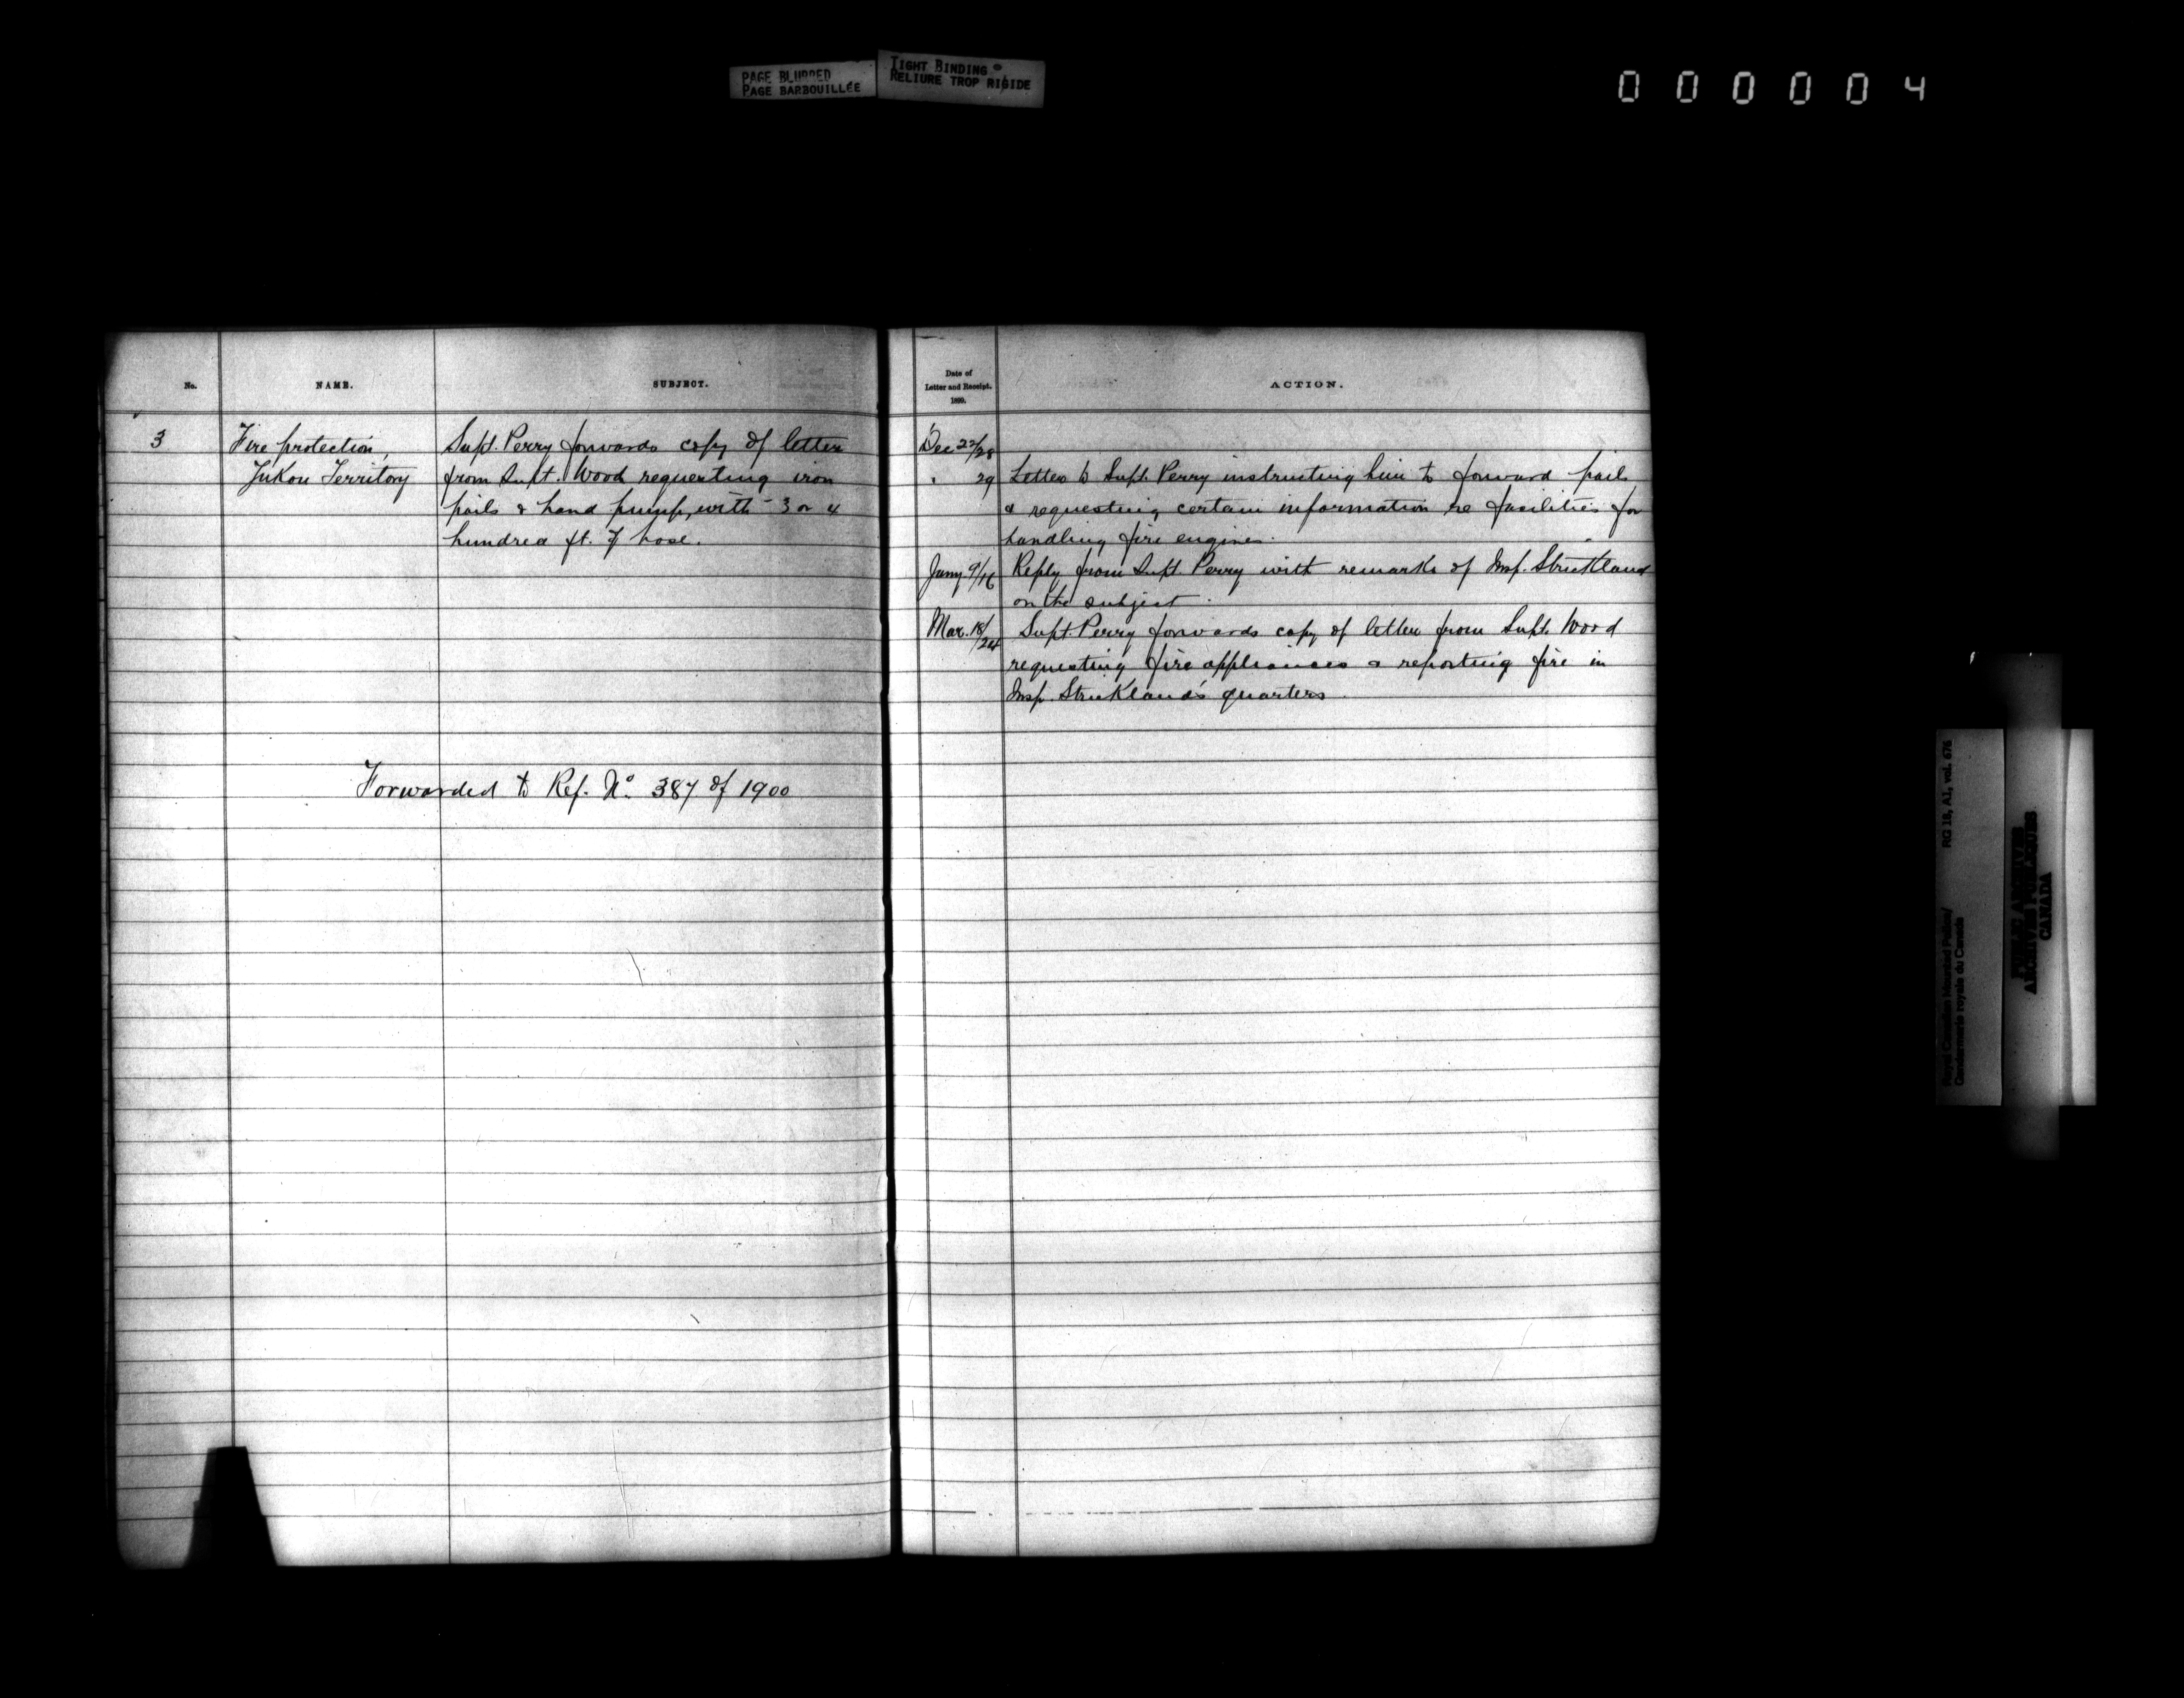 PAGE BLURRED
PAGE BARBOUILLÉE
TIGHT BINDING
RELIURE TROP RIGIDE
000004
No.
NAME.
SUBJECT.
3
Fire protection,
Yukon Territory
Supt. Perry forwards copy of letter
from Supt. Wood requesting iron
pails & hand pump, with 3 or 4
hundred ft. of hose.
Forwarded to Ref. No. 387 of 1900
Date of
Letter and Receipt.
1899.
ACTION.
Dec 22/28
" 29 Letter to Supt. Perry instructing him to forward pails
& requesting certain information re facilities for
handling fire engines.
Jany. 9/16 Reply from Supt. Perry with remarks of Insp. Strickland
on the subject.
Mar. 18/24 Supt. Perry forwards copy of letter from Supt. Wood
requesting fire appliances & reporting fire in
Insp. Strickland's quarters.
Royal Canadian Mounted Police/ RG 18, A1, vol. 676
Gendarmerie royale du Canada
PUBLIC ARCHIVES
ARCHIVES PUBLIQUES
CANADA